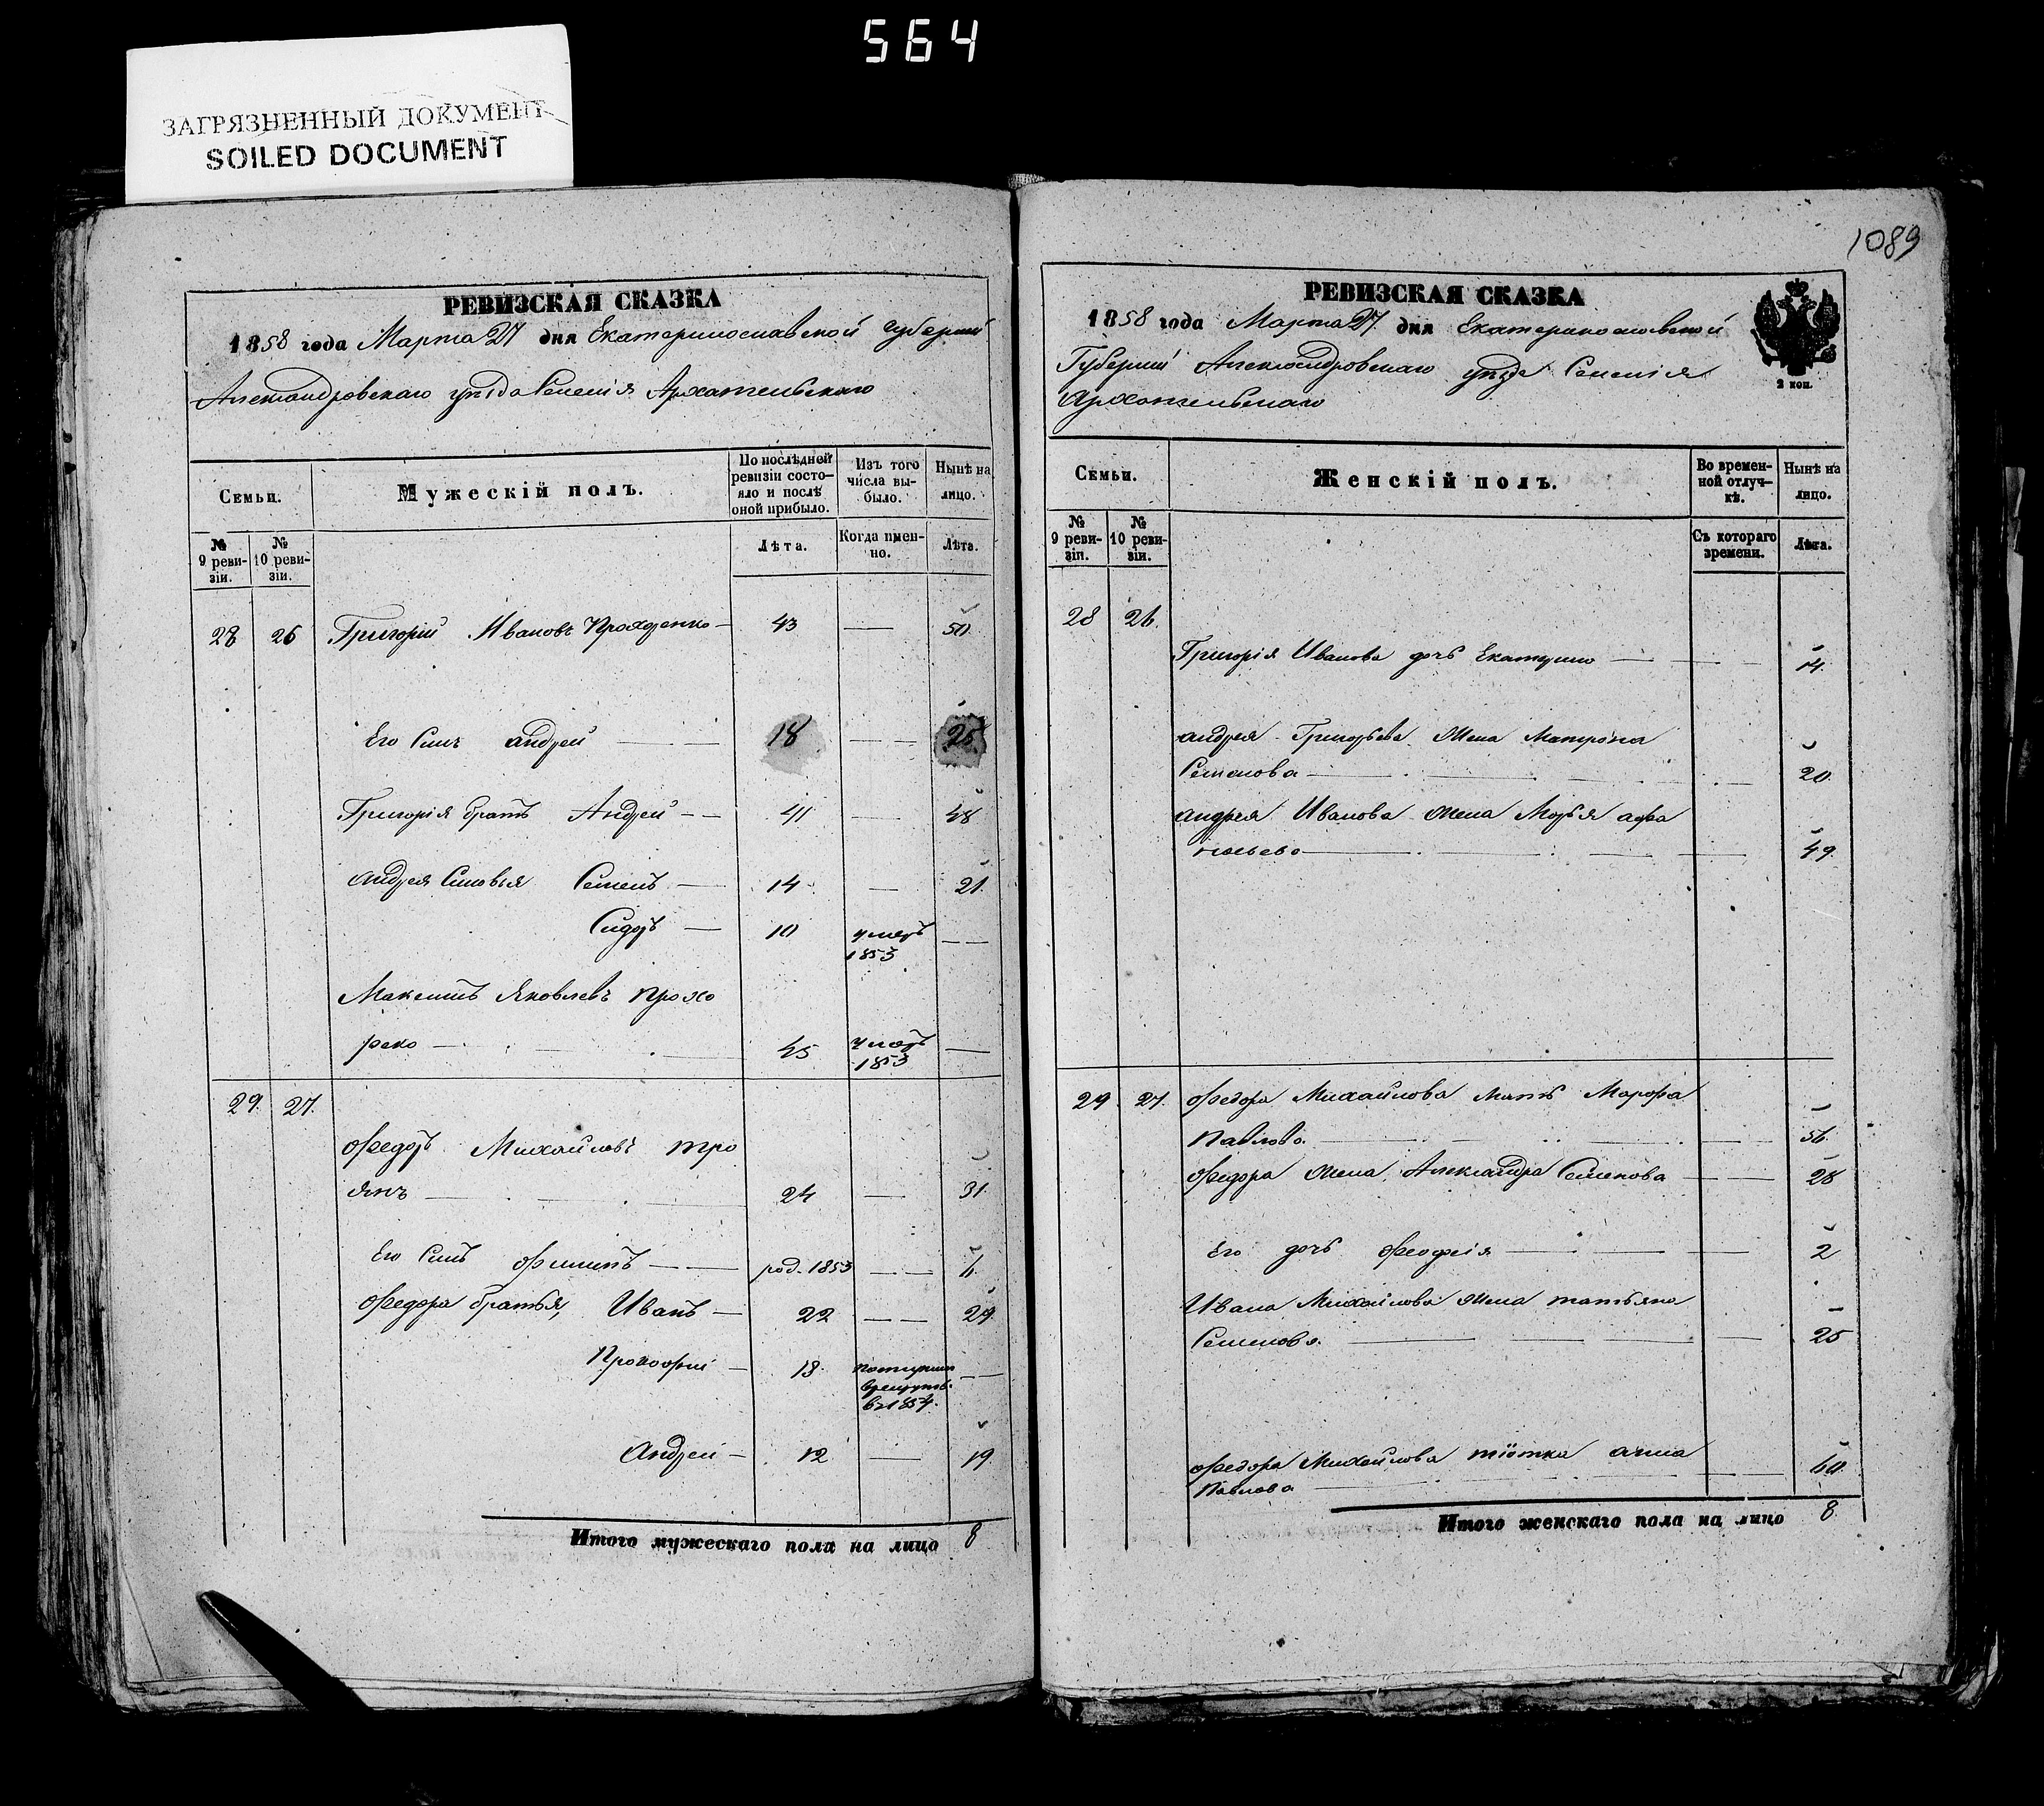 564
ЗАГРЯЗНЕННЫЙ ДОКУМЕНТ
SOILED DOCUMENT
РЕВИЗСКАЯ СКАЗКА
1858 года Марта 27 дня Екатеринославской Губерніи
Александровскаго уѣзда Селенія Архангельскаго
Семьи.
Мужескій полъ.
По послѣдней ревизіи состояло и послѣ оной прибыло.
Изъ того числа выбыло.
Нынѣ на лицо.
№ 9 ревизіи.
№ 10 ревизіи.
Лѣта.
Когда именно.
Лѣта.
28 26 Григорій Ивановъ 43 — 50
Его Сынъ Андрей — 18 — 25
Григорія братъ Андрей — 41 — 48
Андрея Сыновья Семенъ — 14 — 21
Сидоръ — 10 умеръ 1853 —
Яковлевъ
45 умеръ 1853 —
29. 27.
Федоръ Михайловъ Тро
янъ — 24 — 31
Его Сынъ Филипъ — род. 1853 —
Федора братья, Иванъ — 22 — 29
Прокофій — 13 в 1854. —
Андрей — 12 — 19
Итого мужескаго пола на лицо 8
1089
РЕВИЗСКАЯ СКАЗКА
1858 года Марта 27 дня Екатеринославской
Губерніи Александровскаго уѣзда Селенія
Архангельскаго
2 коп.
Семьи.
Женскій полъ.
Во временной отлучкѣ.
Нынѣ на лицо.
№ 9 ревизіи.
№ 10 ревизіи.
Съ котораго времени.
Лѣта.
28 26
Григорія Иванова дочь Екатерина — 14
Андрея Григорьева Жена Матрона
Семенова — 20
Андрея Иванова Жена Марья Афа
насьева — 49
29 27 Федора Михайлова мать Марфа
Павлова — 56
Федора Жена Александра Семенова — 28
Его дочь — 2
Ивана Михайлова Жена Татьяна
Семенова — 25
Федора Михайлова тіотка Анна
Павлова — 60
Итого женскаго пола на лицо 8